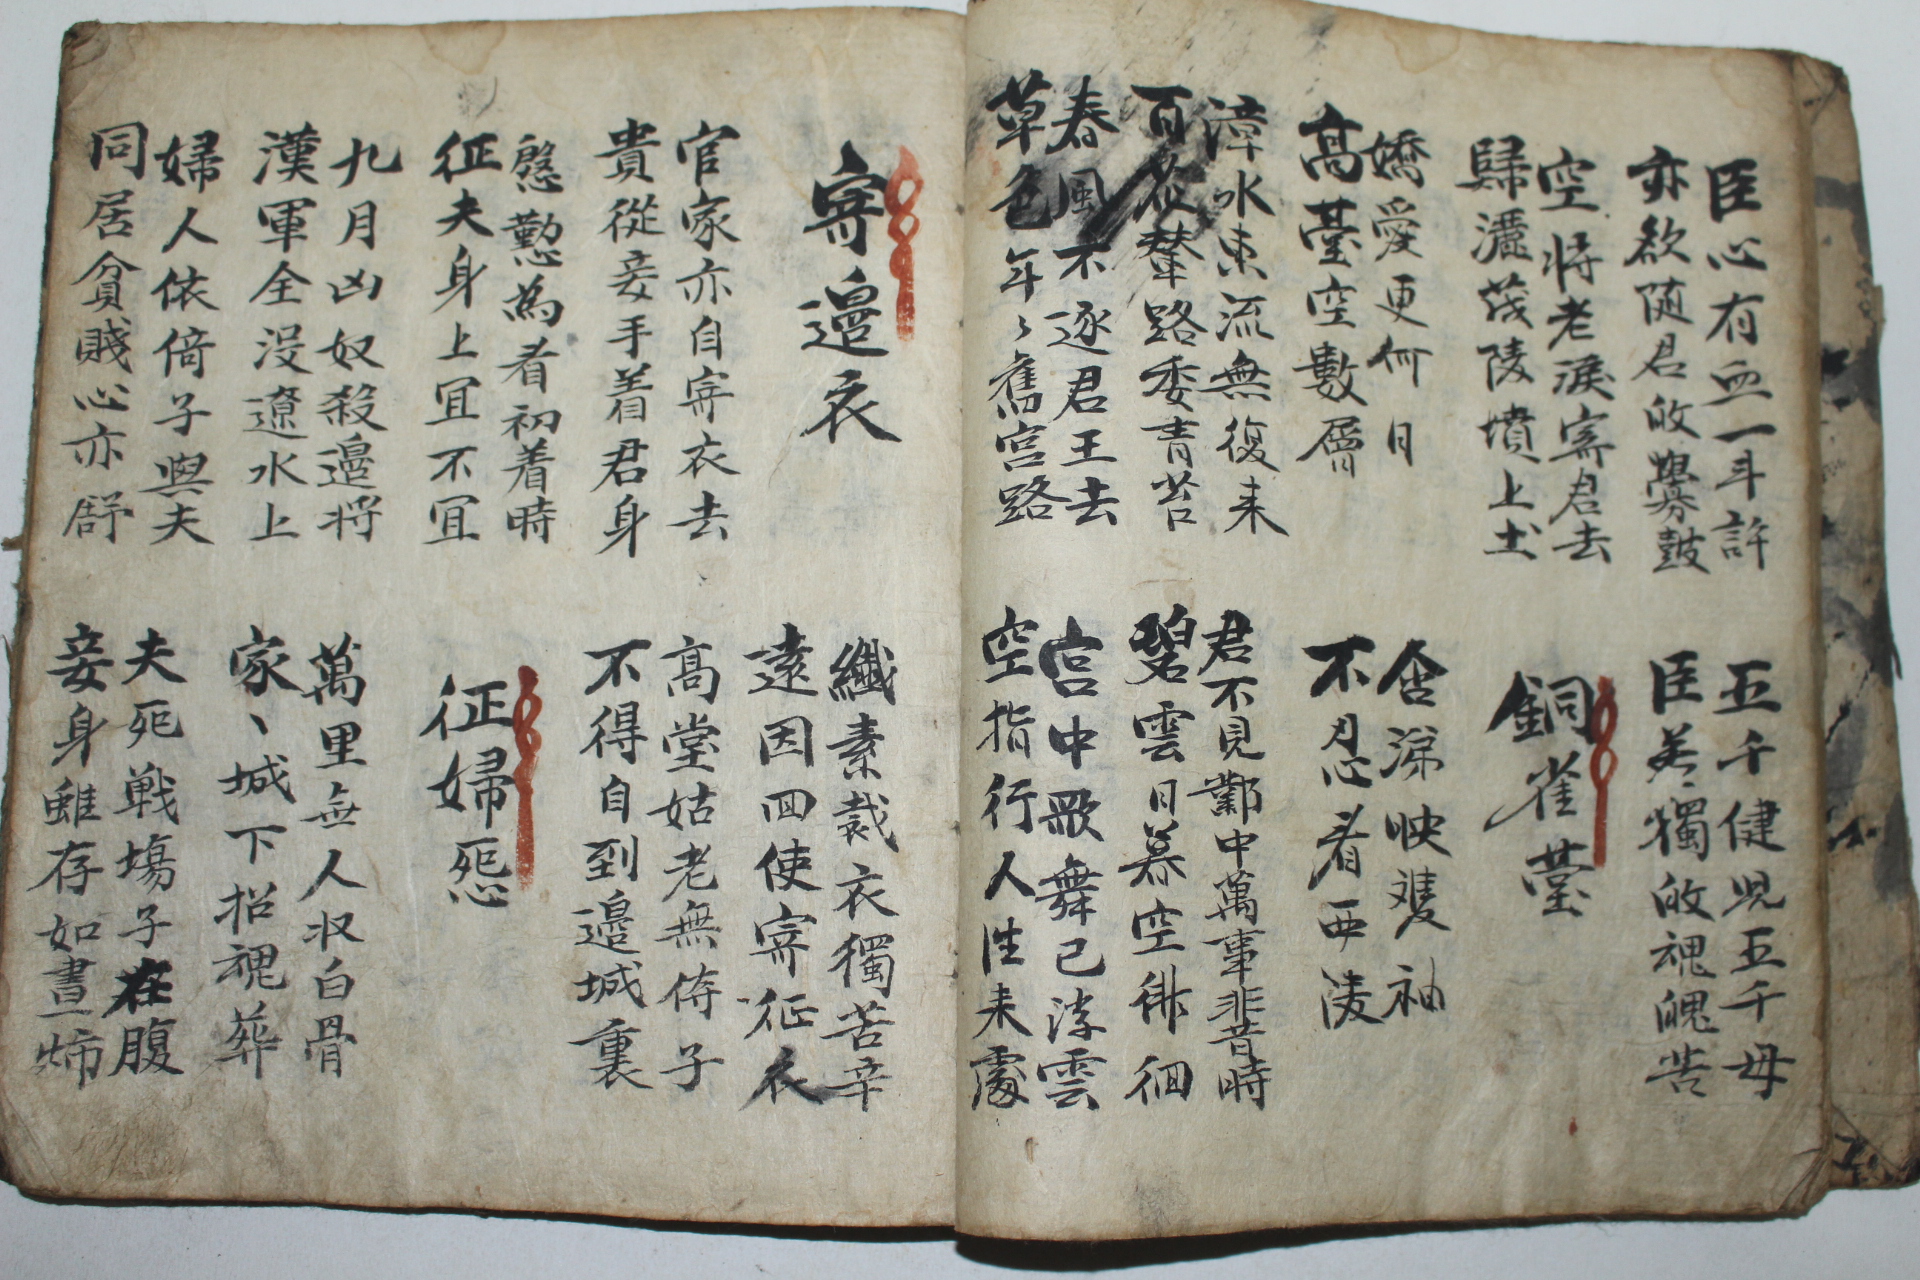 臣心有血一斗許
亦欲随君效釁鼓
五千健児五千母
臣若獨效魂魄苦
空将老淚寄君去
歸灑茂陵墳上土
銅雀臺
嬌愛更何日
髙臺空數層
含涕映雙袖
不忍看西陵
漳水東流無復来
百花輦路委青苔
君不見鄴中萬事非昔時
碧雲日暮空徘徊
春風不逐君王去
草色年々舊宮路
宮中歌舞已浮雲
空指行人徃来處
寄邉衣
纖素裁衣獨苦辛
遠因回使寄征衣
官家亦自寄衣去
貴從妾手着君身
髙堂姑老無侍子
不得自到邉城裏
慇懃為看初着時
征夫身上冝不冝
征婦怨
九月凶奴殺邉将
漢軍全沒遼水上
萬里無人收白骨
家々城下招魂葬
婦人依倚子與夫
同居貧賤心亦舒
夫死戦場子在腹
妾身雖存如晝